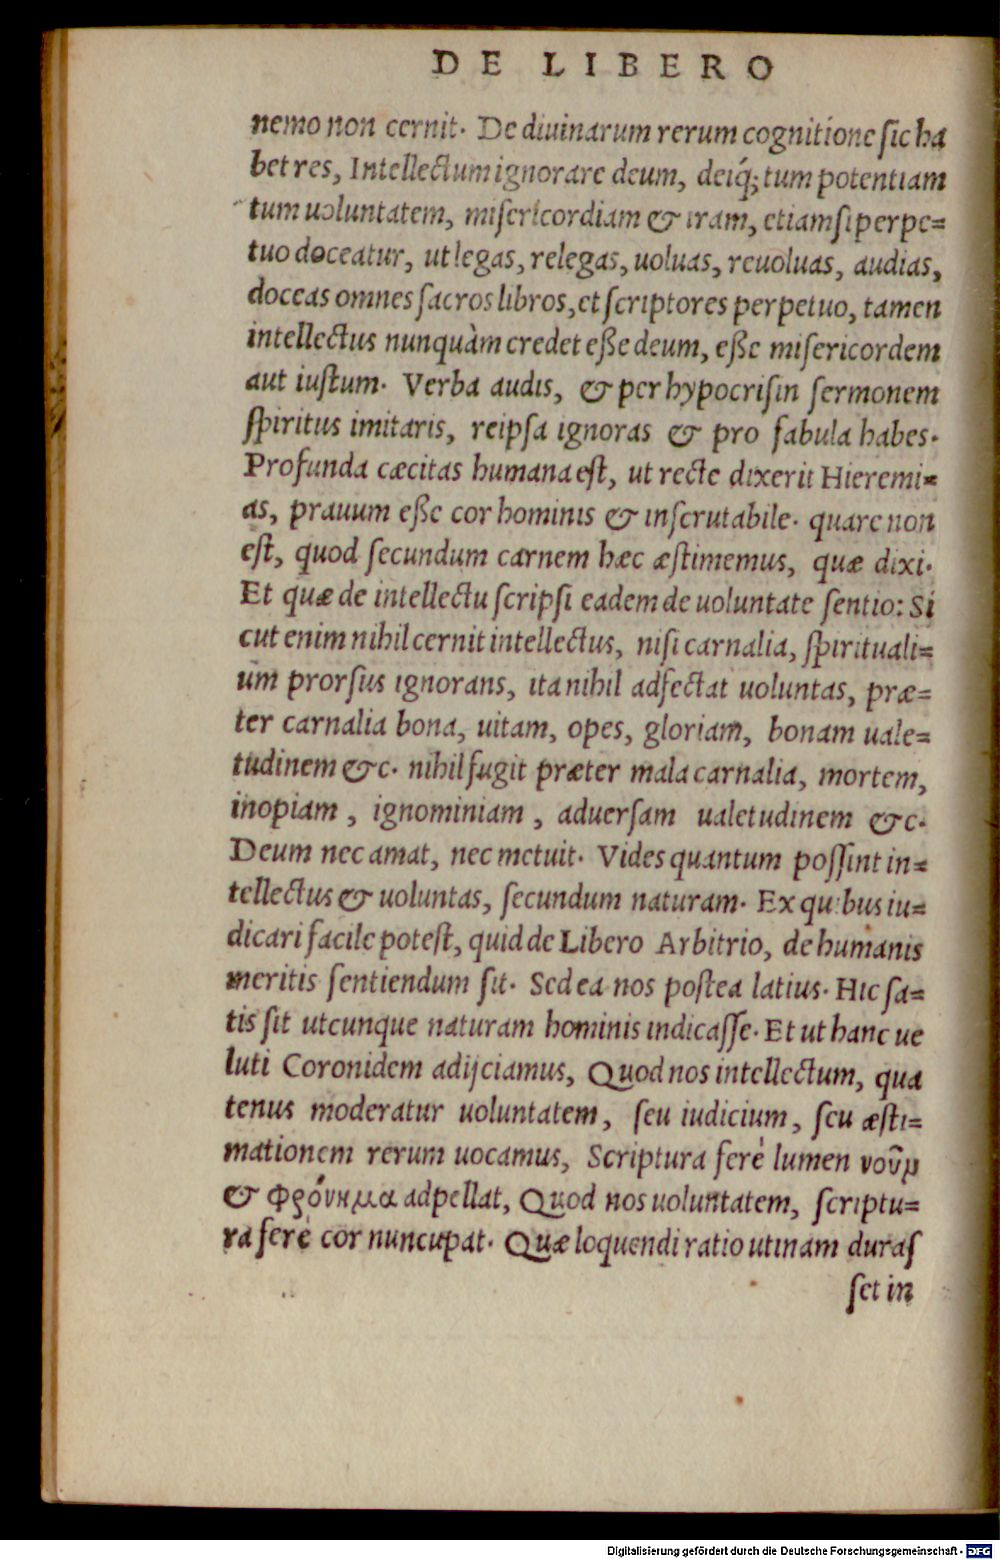 DE LIBERO
nemo non cernit. De diuinarum rerum cognitione ſic ha
bet res, Intellectum ignorare deum, deiq́; tum potentiam
tum uoluntatem, miſericordiam & iram, etiamſi perpe=
tuo doceatur, ut legas, relegas, uoluas, reuoluas, audias,
doceas omnes ſacros libros, et ſcriptores perpetuo, tamen
intellectus nunquàm credet eße deum, eße miſericordem
aut iuſtum. Verba audis, & per hypocriſin ſermonem
ſpiritus imitaris, reipſa ignoras & pro fabula habes.
Profunda cæcitas humana eſt, ut recte dixerit Hieremi=
as, prauum eße cor hominis & inſcrutabile. quare non
eſt, quod ſecundum carnem hæc æſtimemus, quæ dixi.
Et quæ de intellectu ſcripſi eadem de uoluntate ſentio: Si
cut enim nihil cernit intellectus, niſi carnalia, ſpirituali=
um prorſus ignorans, ita nihil adfectat uoluntas, præ=
ter carnalia bona, uitam, opes, gloriam, bonam uale=
tudinem &c. nihil fugit præter mala carnalia, mortem,
inopiam, ignominiam, aduerſam ualetudinem &c.
Deum nec amat, nec metuit. Vides quantum poſſint in=
tellectus & uoluntas, ſecundum naturam. Ex quibus iu=
dicari facile poteſt, quid de Libero Arbitrio, de humanis
meritis ſentiendum ſit. Sed ea nos poſtea latius. Hic ſa=
tis ſit utcunque naturam hominis indicaſſe. Et ut hanc ue
luti Coronidem adijciamus, Quod nos intellectum, qua
tenus moderatur uoluntatem, ſeu iudicium, ſeu æſti=
mationem rerum uocamus, Scriptura ferè lumen νοῦμ
& φρόνημα adpellat, Quod nos uoluntatem, ſcriptu=
ra ferè cor nuncupat. Quæ loquendi ratio utinam duraſ
ſet in
Digitalisierung gefördert durch die Deutsche Forschungsgemeinschaft - DFG